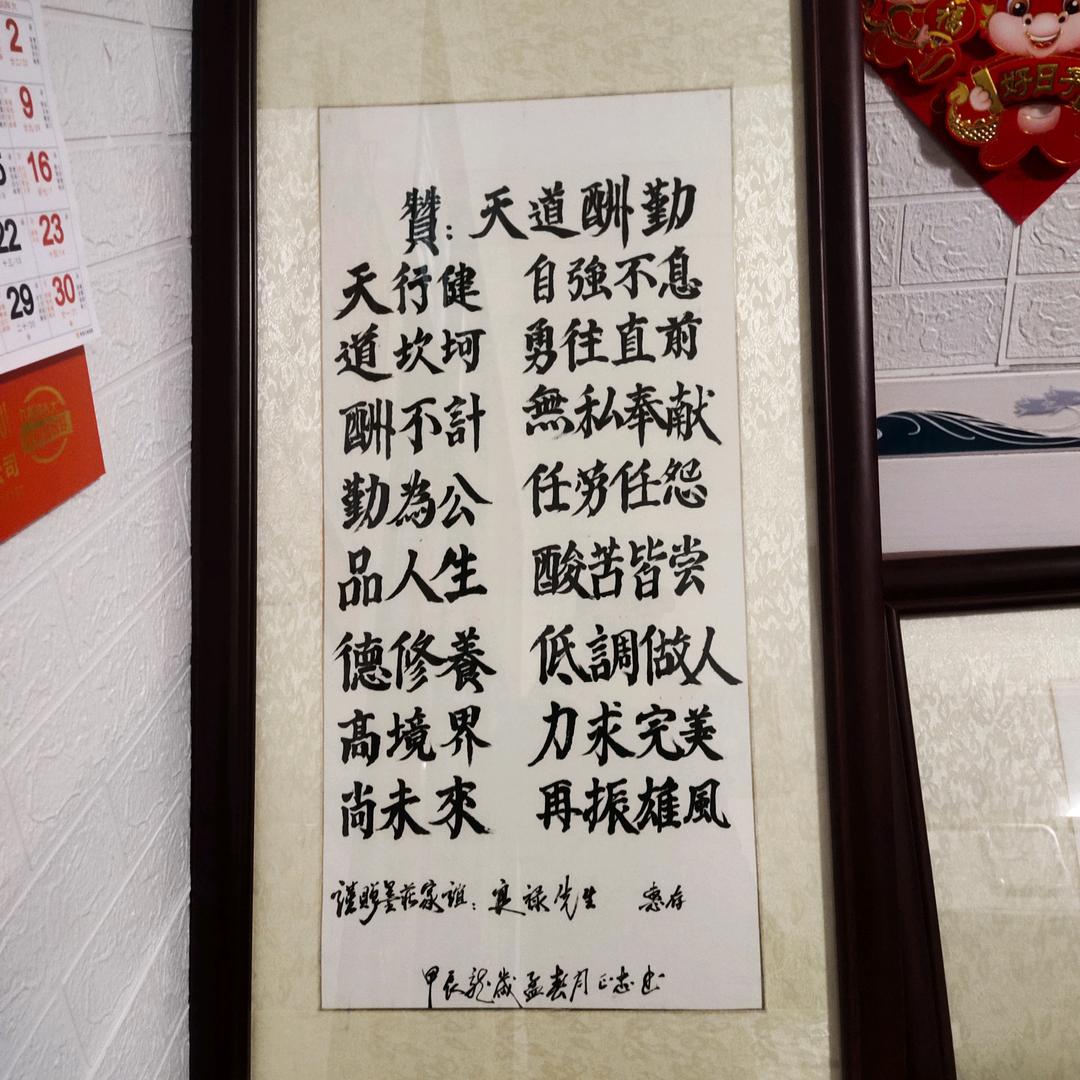 2
9
16
22 23
29 30
司
福
好日子
贊：天道酬勤
天行健 自強不息
道坎坷 勇往直前
酬不計 無私奉献
勤為公 任劳任怨
品人生 酸苦皆尝
德修養 低調做人
高境界 力求完美
尚未來 再振雄風
謹贈墨莊家誼：寅禄先生 惠存
甲辰龍歲孟春月正志书